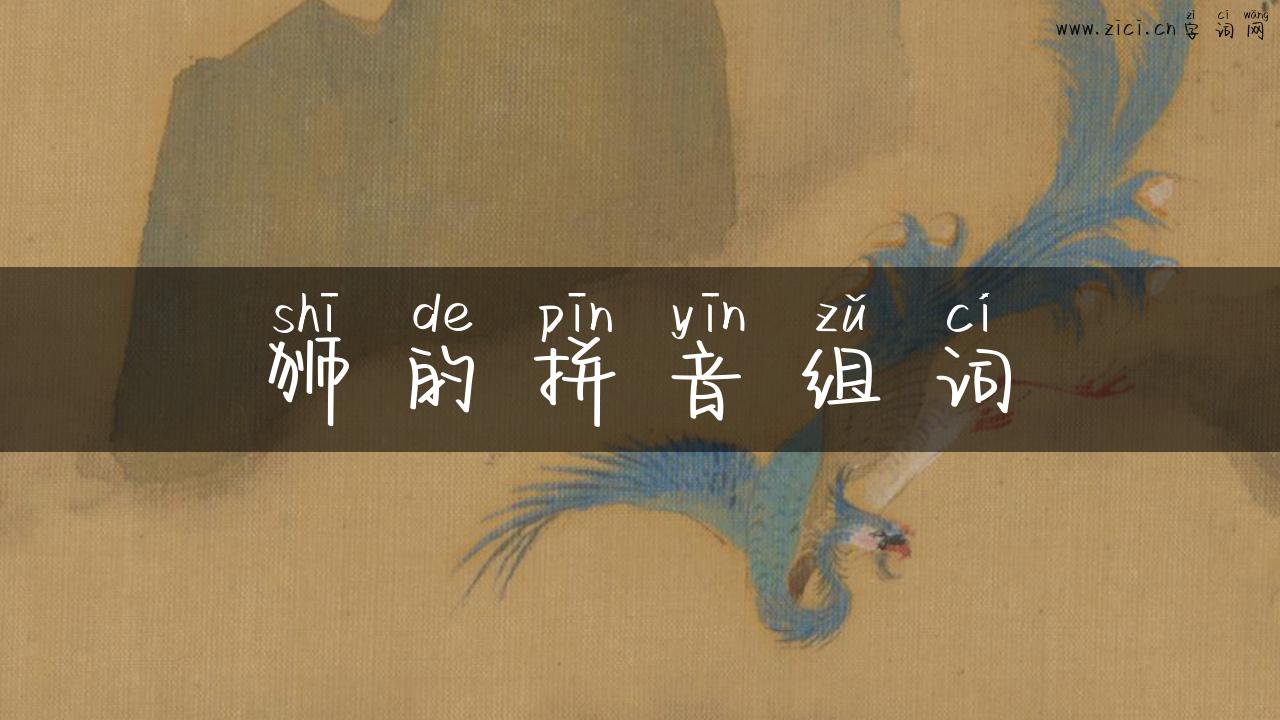 zì cí wǎng
www.zici.cn 字词网
shī de pīn yīn zǔ cí
狮的拼音组词